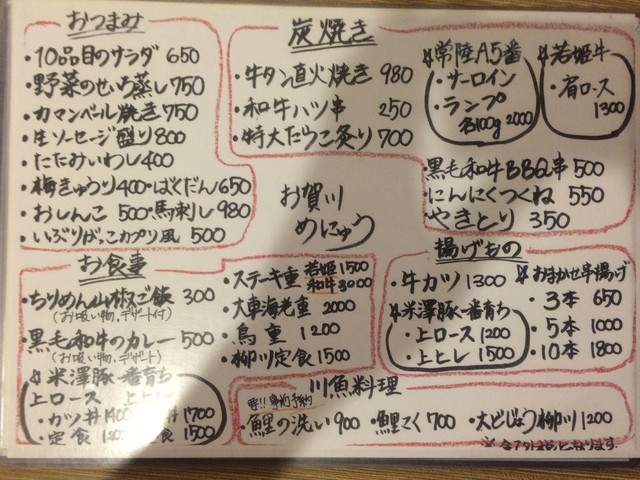 おつまみ
・10品目のサラダ 650
・野菜のせいろ蒸し 750
・カマンベール焼き 750
・生ソーセージ盛り 800
・たたみいわし 400
・梅きゅうり 400・ばくだん 650
・おしんこ 500・馬刺し 980
・いぶりがっこカプリ風 500
炭焼き
・牛タン直火焼き 980
・和牛ハツ串 250
・特大たらこ炙り 700
常陸A5番
・サーロイン
・ランプ
各100g 2000
若姫牛
・肩ロース
1300
・黒毛和牛BBQ串 500
・にんにくつくね 550
・やきとり 350
お賀川
めにゅう
お食事
・ちりめん山椒ご飯 300
(お吸い物、デザート付)
・黒毛和牛のカレー 500
(お吸い物、デザート)
米澤豚一番育ち
上ロース 上ヒレ
・カツ丼 1400 丼 1700
・定食 1200 食 1500
・ステーキ重 若姫 1500
和牛 3000
・大車海老重 2000
・鳥重 1200
・柳川定食 1500
揚げもの
・牛カツ 1300
米澤豚一番育ち
・上ロース 1200
・上ヒレ 1500
おまかせ串揚げ
・3本 650
・5本 1000
・10本 1800
川魚料理
要!!事前予約
・鯉の洗い 900 ・鯉こく 700 ・大どじょう柳川 1200